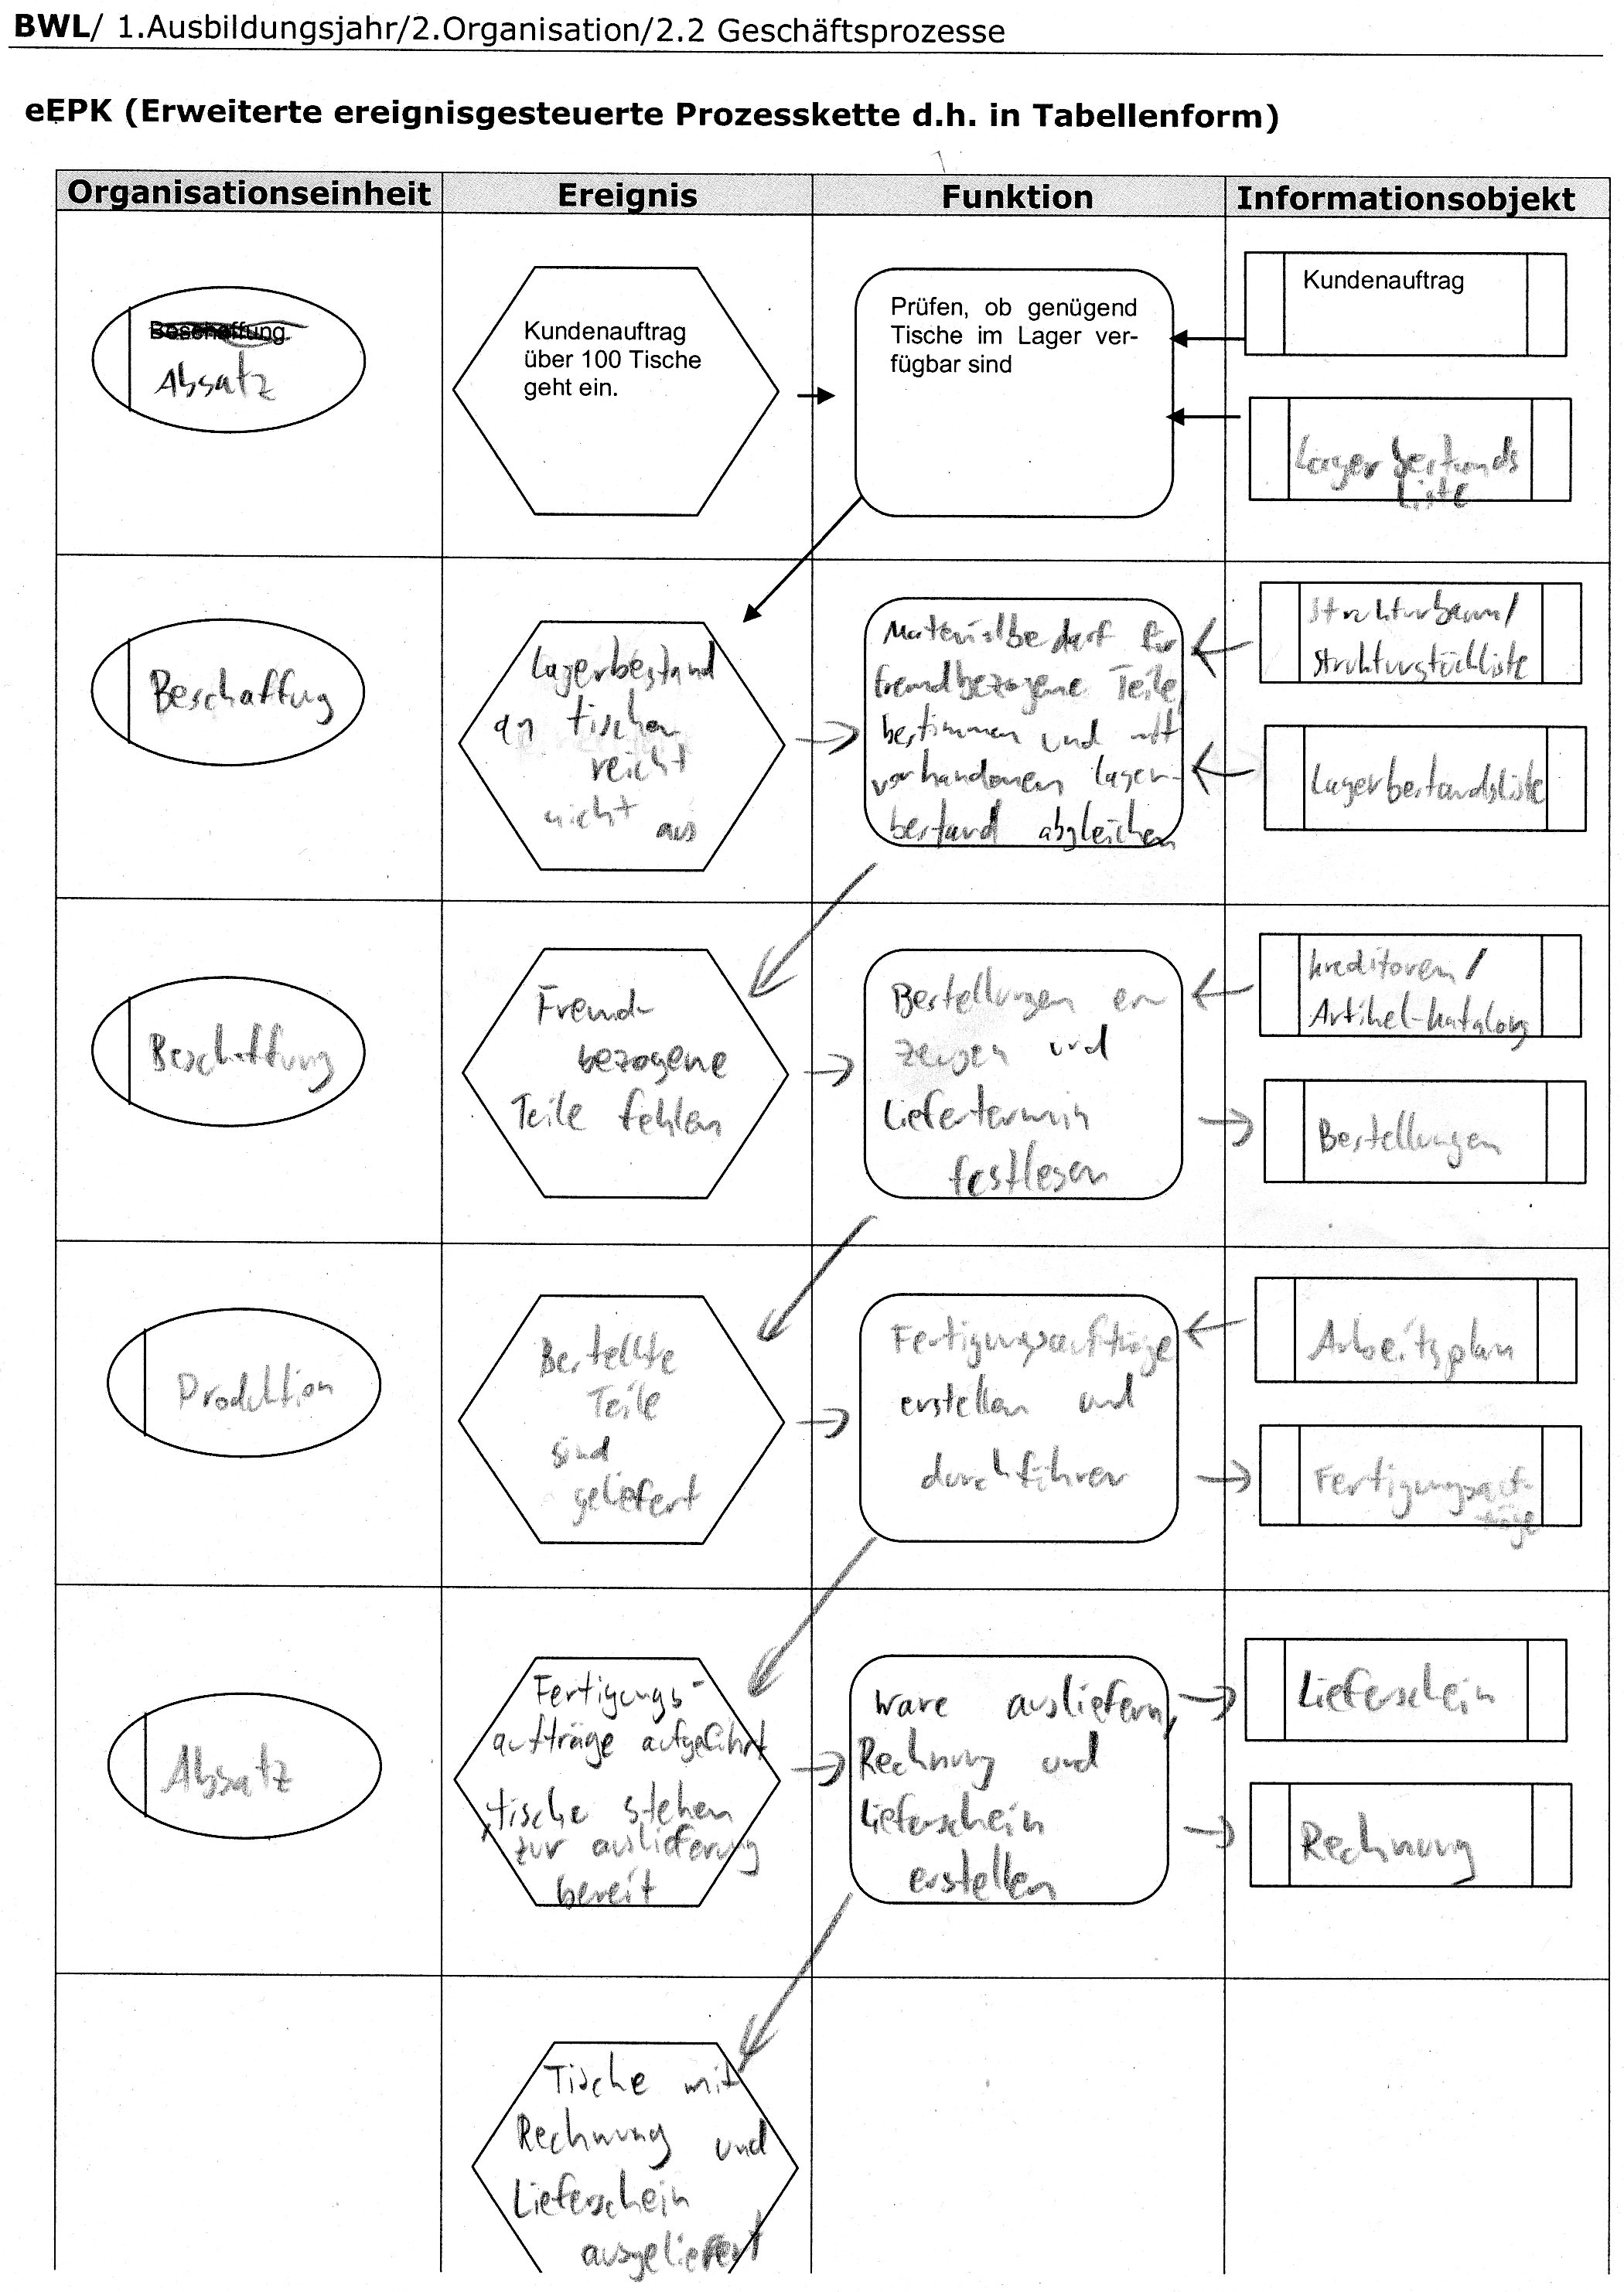 BWL/ 1.Ausbildungsjahr/2.Organisation/2.2 Geschäftsprozesse
eEPK (Erweiterte ereignisgesteuerte Prozesskette d.h. in Tabellenform)
Organisationseinheit
Ereignis
Funktion
Informationsobjekt
Beschaffung
Absatz
Kundenauftrag
über 100 Tische
geht ein.
Prüfen, ob genügend
Tische im Lager ver-
fügbar sind
Kundenauftrag
Lagerbestands
Liste
Beschaffug
Lagerbestand
an tischen
reicht
nicht aus
Materialbedarf für
fremdbezogene Teile
bestimmen und mit
vorhandenen lager-
bestand abgleichen
Strukturbaum/
Strukturstückliste
Lagerbestandsliste
Beschaffung
Fremd-
bezogene
Teile fehlen
Bestellungen er-
zeugen und
Liefertermin
festlegen
kreditoren/
Artikel-katalog
Bestellungen
Produktion
Bestellte
Teile
sind
geliefert
Fertigungsaufträge
erstellen und
durchführen
Arbeitsplan
Fertigungsauf-
träge
Absatz
Fertigungs-
aufträge aufgeführt
,tische stehen
zur auslieferung
bereit
Ware ausliefern,
Rechnung und
Lieferschein
erstellen
Lieferschein
Rechnung
Tische mit
Rechnung und
Lieferschein
ausgeliefert